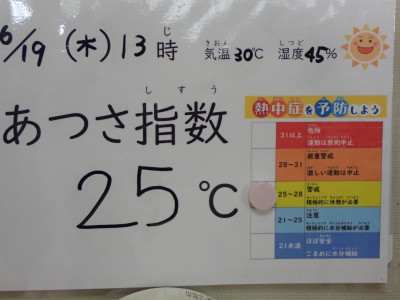 6/19 (木) 13時 気温30℃ 湿度45%
熱中症を予防しよう
あつさ指数
25℃
31以上 危険
運動は原則中止
28~31 厳重警戒
激しい運動は中止
25~28 警戒
積極的に休憩が必要
21~25 注意
積極的に水分補給が必要
21未満 ほぼ安全
こまめに水分補給